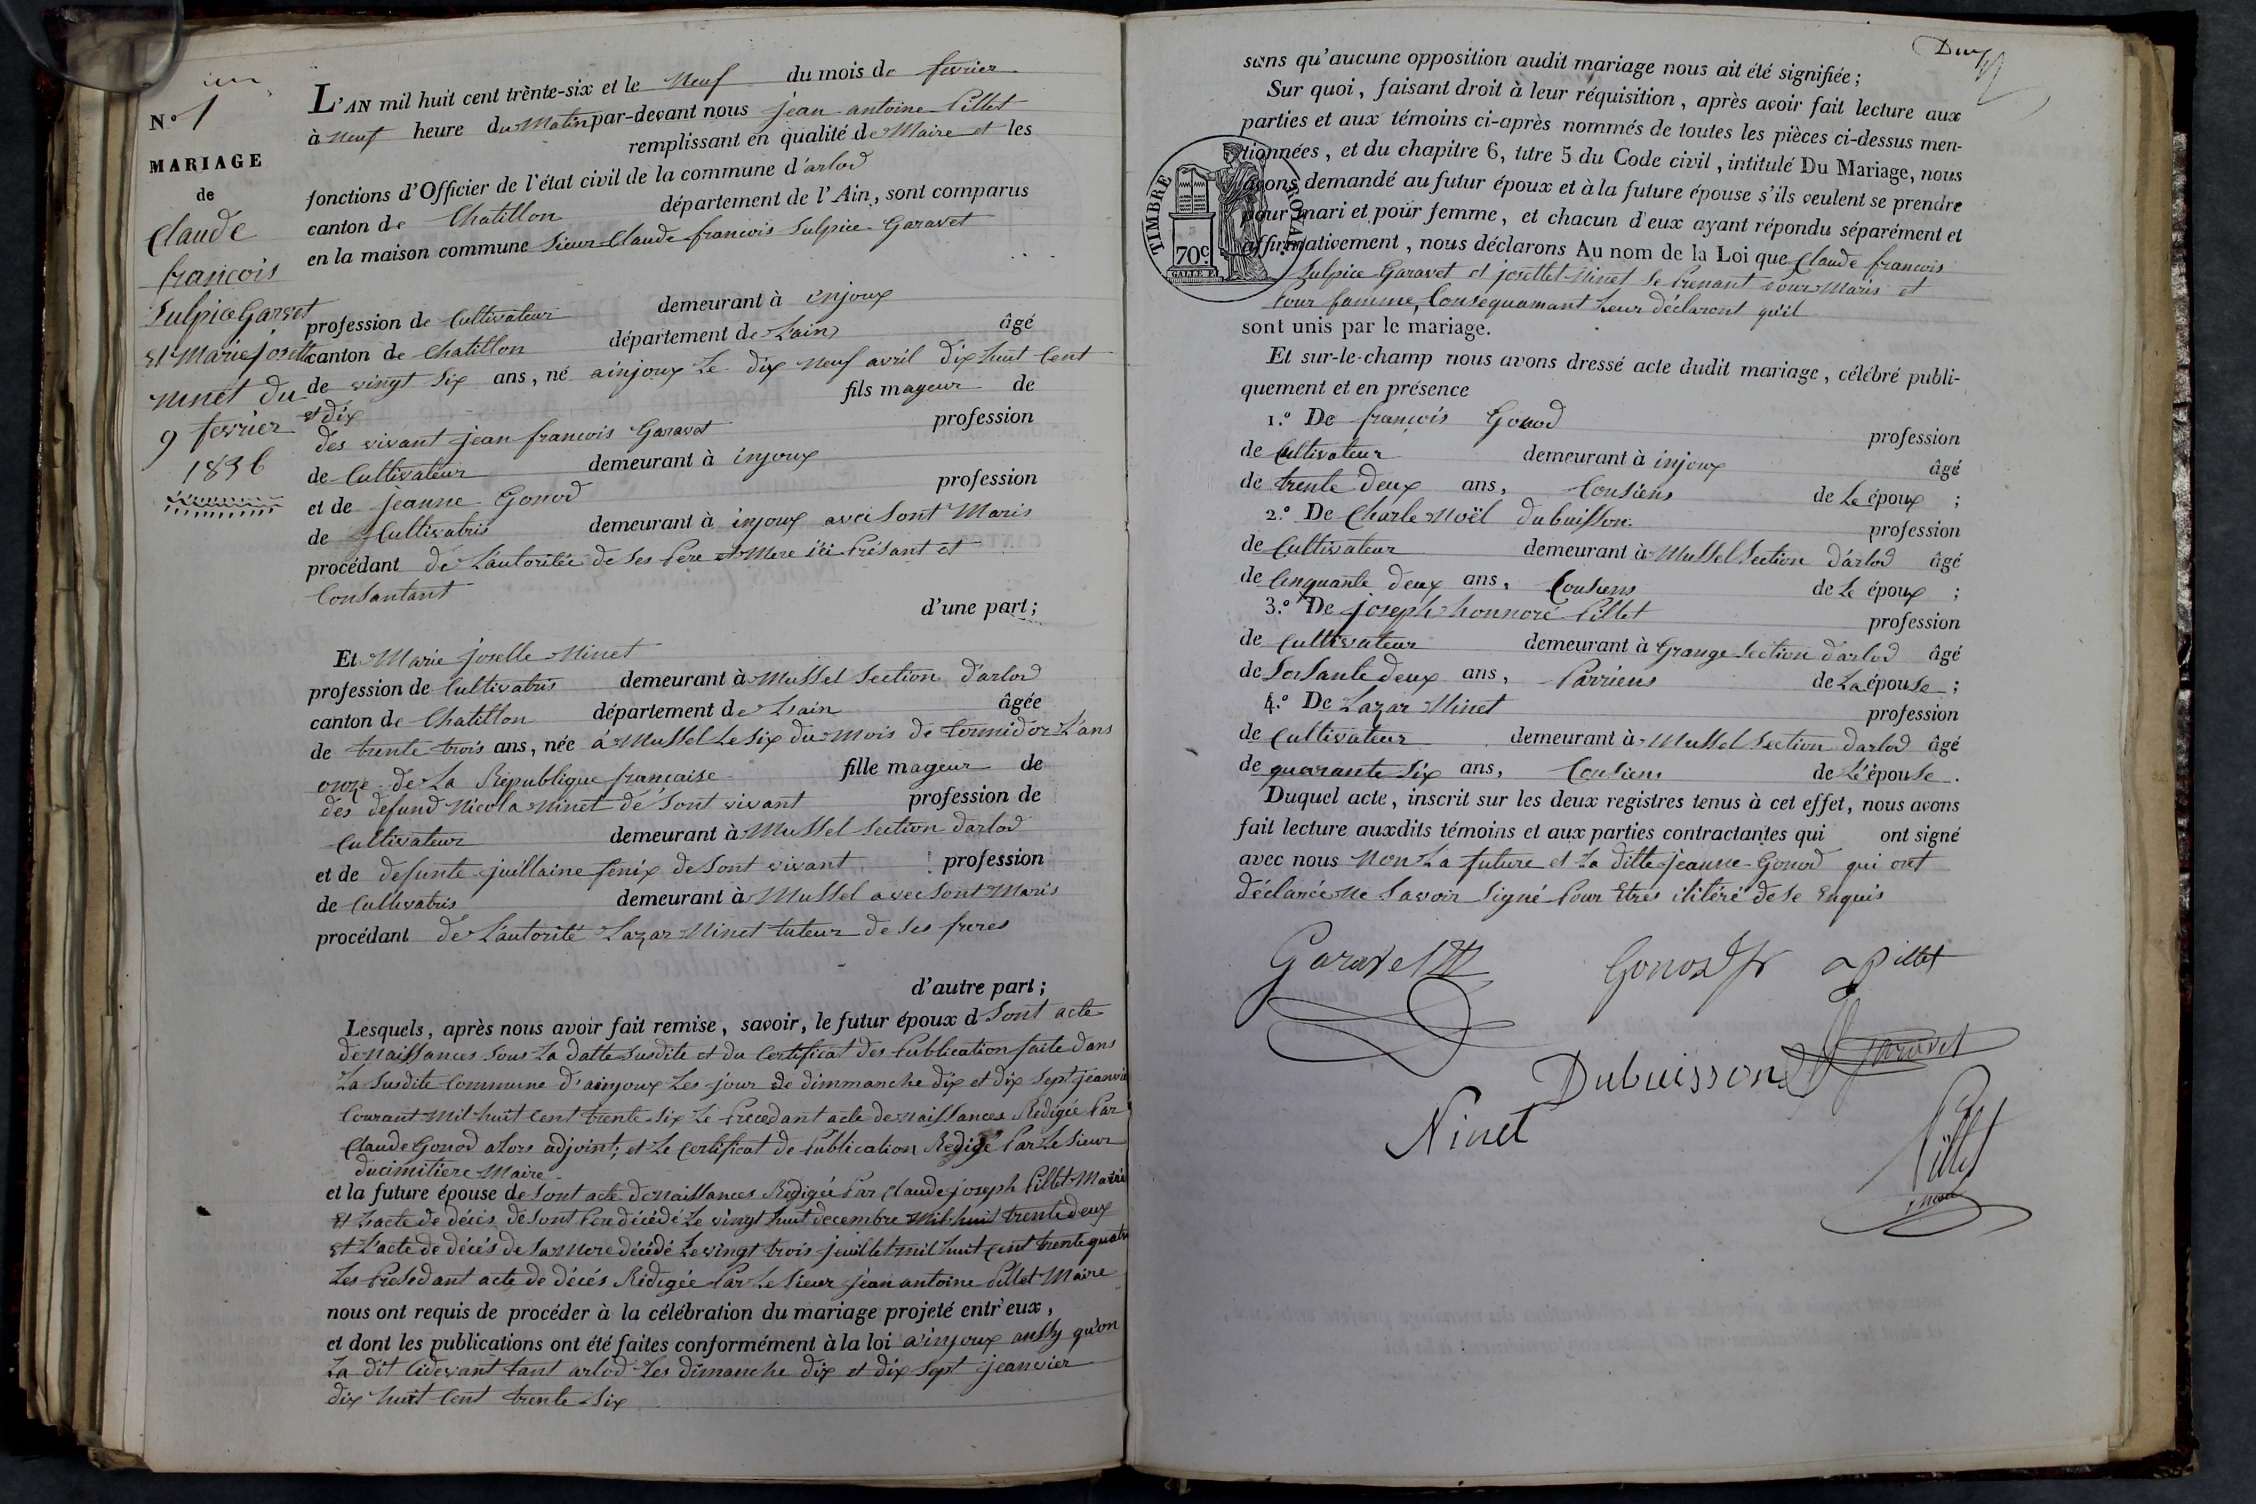 un
N.° 1
MARIAGE
de
Claude
francois
Sulpice Garavet
et Marie josette
ninet du
9 fevrier
1836
L'AN mil huit cent trènte-six et le Neuf du mois de fevrier
à Neuf heure du Matin par-devant nous jean antoine Pillet
remplissant en qualité de Maire et les
fonctions d'Officier de l'état civil de la commune d'arlod
canton de Chatillon département de l'Ain, sont comparus
en la maison commune Sieur Claude francois Sulpice Garavet
profession de Cultivateur demeurant à injoux
canton de Chatillon département de Lain âgé
de vingt Six ans, né ainjoux Le dix neuf avril dix huit Cent
et dix fils mageur de
des vivant jean francois Garavet profession
de Cultivateur demeurant à injoux
et de jeanne Gonod profession
de Cultivatris demeurant à injoux avec Sont Maris
procédant de L'autoritée de Ses Pere et Mere ici Présant et
Consantant
d'une part;
Et Marie joselle Ninet
profession de Cultivatris demeurant à Mussel Section d'arlod
canton de Chatillon département de Lain âgée
de trente trois ans, née à Mussel Le Six du Mois de termidor L'ans
onze de La République francaise fille mageur de
des defund Nicola Ninet de Sont vivant profession de
Cultivateur demeurant à Mussel Section darlod
et de defunte juillaine fénix de Sont vivant profession
de Cultivatris demeurant à Mussel avec Sont Maris
procédant de L'autorité Lazar Ninet tuteur de Ses freres
d'autre part;
Lesquels, après nous avoir fait remise, savoir, le futur époux d Sont acte
de Naissances Sous La datte Susdite et du Certificat des Publication faite dans
La Susdite Commune d'ainjoux Les jour de dimmanche dix et dix Sept jeanvie
Courant Mil huit Cent trente Six Le Precedant acte de Naissances Redigée Par
Claude Gonod alors adjoint; et Le Certificat de Publication Redigé Par Le Sieur
ducimitiere Maire
et la future épouse de Sont acte de Naissances Redigée Par Claude joseph Pillet Maire
Et L'acte de décés de Sont Pere décédé Le vingt huit decembre Mil huit trente deux
Et L'acte de décés de Sa Mere décédé Le vingt trois juillet mil huit Cent trente quatre
Les Presedant acte de décés Rédigée Par Le Sieur jean antoine Pillet Maire
nous ont requis de procéder à la célébration du mariage projeté entr'eux,
et dont les publications ont été faites conformément à la loi ainjoux aussy qu'on
La dit Cidevant tant arlod Les dimanche dix et dix Sept jeanvier
dix huit Cent trente Six
Deux
sans qu'aucune opposition audit mariage nous ait été signifiée;
Sur quoi, faisant droit à leur réquisition, après avoir fait lecture aux
parties et aux témoins ci-après nommés de toutes les pièces ci-dessus men-
tionnées, et du chapitre 6, titre 5 du Code civil, intitulé Du Mariage, nous
avons demandé au futur époux et à la future épouse s'ils veulent se prendre
pour mari et pour femme, et chacun d'eux ayant répondu séparément et
affirmativement, nous déclarons Au nom de la Loi que Claude francois
Sulpice Garavet et josettet Ninet Se Prenant pour Maris et
Pour famme, Consequamant Leur déclaront qu'il
sont unis par le mariage.
TIMBRE ROYAL
70c.
GALLE F.
Et sur-le-champ nous avons dressé acte dudit mariage, célébré publi-
quement et en présence
1.° De françois Gonod profession
de Cultivateur demeurant à injoux âgé
de trente deux ans, Cousiens de Le époux;
2.° De Charle Noël dubuisson profession
de Cultivateur demeurant à Mussel Section d'arlod âgé
de Cinquante deux ans, Cousiens de Le époux;
3.° De joseph honnoré Pillet profession
de Cultivateur demeurant à Grange Section d'arlod âgé
de Soisante deux ans, Parriens de La épouse;
4.° De Lazar Ninet profession
de Cultivateur demeurant à Mussel Section darlod âgé
de quarante Six ans, Cousiens de L'épouse.
Duquel acte, inscrit sur les deux registres tenus à cet effet, nous avons
fait lecture auxdits témoins et aux parties contractantes qui ont signé
avec nous Non La future et La ditte jeanne Gonod qui ont
déclarée Ne Savoir Signé Pour Etres ilitéré de Se Enquis
Garavet Gonod fr Pillet
Dubuisson Garavet
Ninet
Pillet
maire